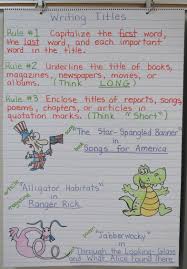 Writing Titles
Rule #1 Capitalize the first word,
the last word, and each important
word in the title.
Rule #2 Underline the title of books,
magazines, newspapers, movies, or
albums. (Think LONG)
Rule #3 Enclose titles of reports, songs,
poems, chapters, or articles in
quotation marks. (Think "Short")
"The Star-Spangled Banner"
in
Songs for America
article
"Alligator Habitats" in
magazine
Ranger Rick
"Jabberwocky"
in
Through the Looking-Glass
and What Alice Found There